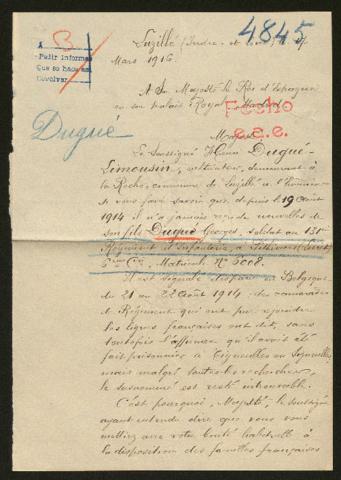 Luzillé (Indre et Loire) le 17
Mars 1916.
4845
B
Pedir informes
Que se haga
Devolver
A Sa Majesté le Roi d'Espagne
en son Palais Royal Madrid
Fecho
Dugué
Majesté
Le Soussigné Dugué-
Limousin, cultivateur, demeurant à
la Roche, commune de Luzillé a l'honneur
de vous faire savoir que, depuis le 19 Août
1914 il n'a jamais reçu de nouvelles de
son fils Dugué Georges, soldat au 135me
Régiment d'Infanterie, à
5me Cie, Matricule No 5008.
Il est signalé disparu en Belgique
du 21 au 22 Août 1914, des camarades
de Régiment qui ont pu rejoindre
les lignes françaises ont dit, sans
toutefois l'affirmer qu'il avait été
fait prisonnier à
mais malgré toutes les recherches,
le susnommé est resté introuvable.
C'est pourquoi, Majesté, le soussigné
ayant entendu dire que vous vous
mettiez avec votre bonté habituelle à
la disposition des familles françaises